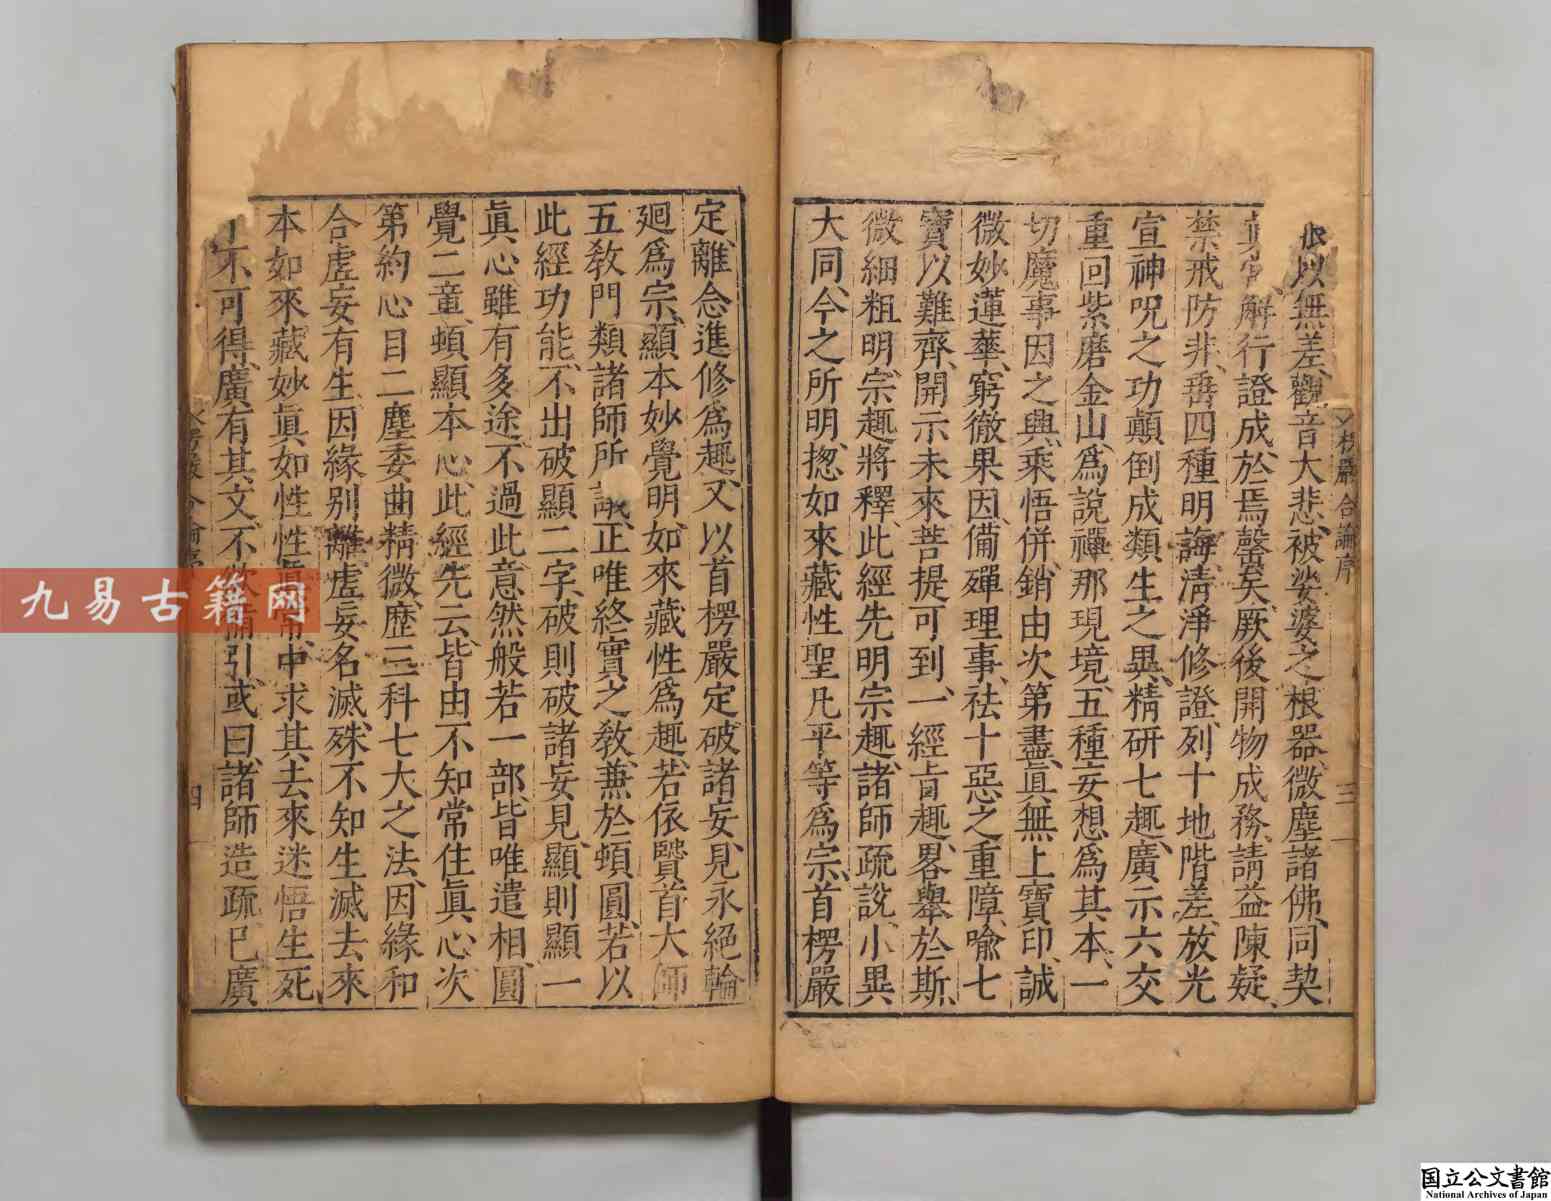 以無差、觀音大悲、被娑婆之根器、微塵諸佛、同契
解行證成、於焉罄矣、厥後開物成務、請益陳疑、
禁戒防非、垂四種明誨、清淨修證、列十地階差、放光
宣神呪之功、顛倒成類生之異、精研七趣、廣示六交
重回紫磨金山、爲說禪那現境、五種妄想爲其本、一
切魔事因之興、乘悟併銷、由次第盡、眞無上寶印、誠
微妙蓮華、窮徹果因、備殫理事、祛十惡之重障、喻七
寶以難齊、開示未來、菩提可到、一經旨趣、畧舉於斯、
微細粗明、宗趣將釋、此經先明宗趣、諸師疏說、小異
大同、今之所明、揔如來藏性聖凡平等爲宗、首楞嚴
楞嚴合論序
三
定、離念進修爲趣、又以首楞嚴定、破諸妄見、永絕輪
廻爲宗、顯本妙覺明、如來藏性爲趣、若依賢首大師
五敎門類、諸師所議、正唯終實之敎、兼於頓圓、若以
此經功能、不出破顯二字、破則破諸妄見、顯則顯一
眞心、雖有多途、不過此意、然般若一部、皆唯遣相、圓
覺二章、頓顯本心、此經先云、皆由不知常住眞心、次
第約心目二塵、委曲精微、歷三科七大之法、因緣和
合、虛妄有生、因緣別離、虛妄名滅、殊不知生滅去來
本如來藏妙眞如性、性眞常中、求其去來迷悟生死
了不可得、廣有其文、不引、或曰、諸師造疏、已廣
四
九易古籍网
国立公文書館
National Archives of Japan